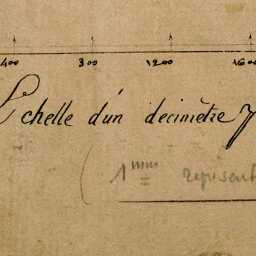 400 800 1200 1600
Echelle d'un décimètre
( 1 mm représent